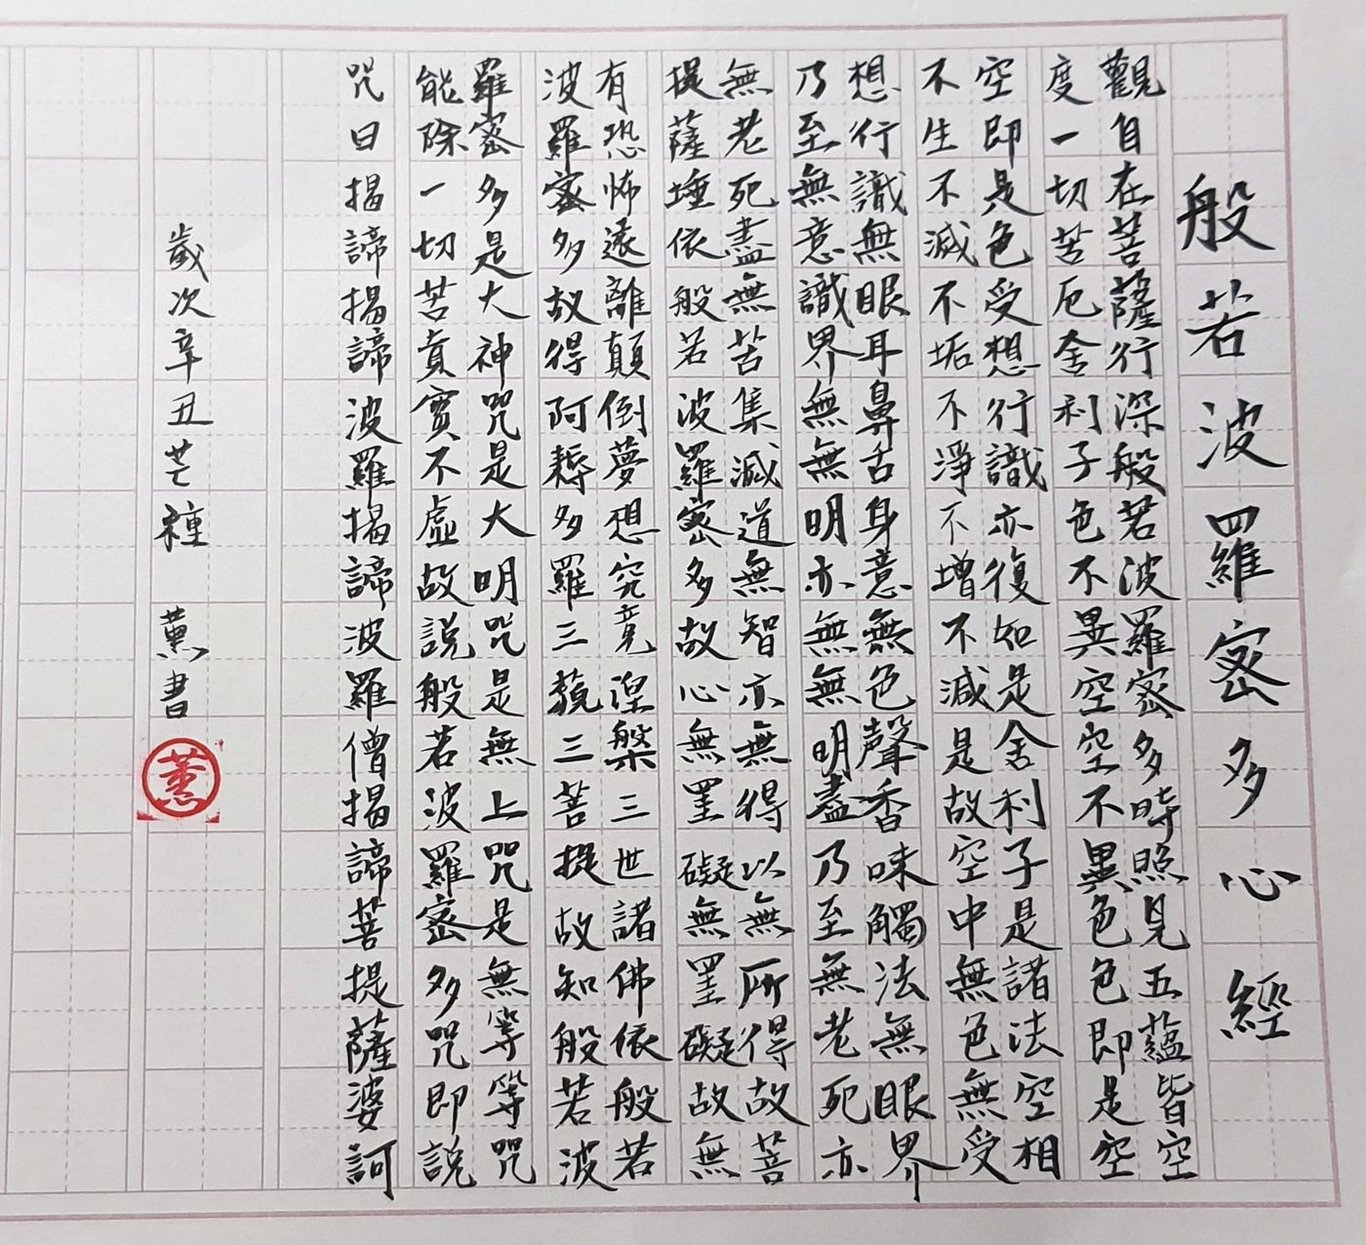 般若波羅密多心經
觀自在菩薩行深般若波羅密多時照見五蘊皆空
度一切苦厄舍利子色不異空空不異色色即是空
空即是色受想行識亦復如是舍利子是諸法空相
不生不滅不垢不淨不增不減是故空中無色無受
想行識無眼耳鼻舌身意無色聲香味觸法無眼界
乃至無意識界無無明亦無無明盡乃至無老死亦
無老死盡無苦集滅道無智亦無得以無所得故菩
提薩埵依般若波羅密多故心無罣礙無罣礙故無
有恐怖遠離顛倒夢想究竟涅槃三世諸佛依般若
波羅密多故得阿耨多羅三藐三菩提故知般若波
羅密多是大神咒是大明咒是無上咒是無等等咒
能除一切苦真實不虛故說般若波羅密多咒即說
咒曰揭諦揭諦波羅揭諦波羅僧揭諦菩提薩婆訶
歲次辛丑芒種 薰書
薰